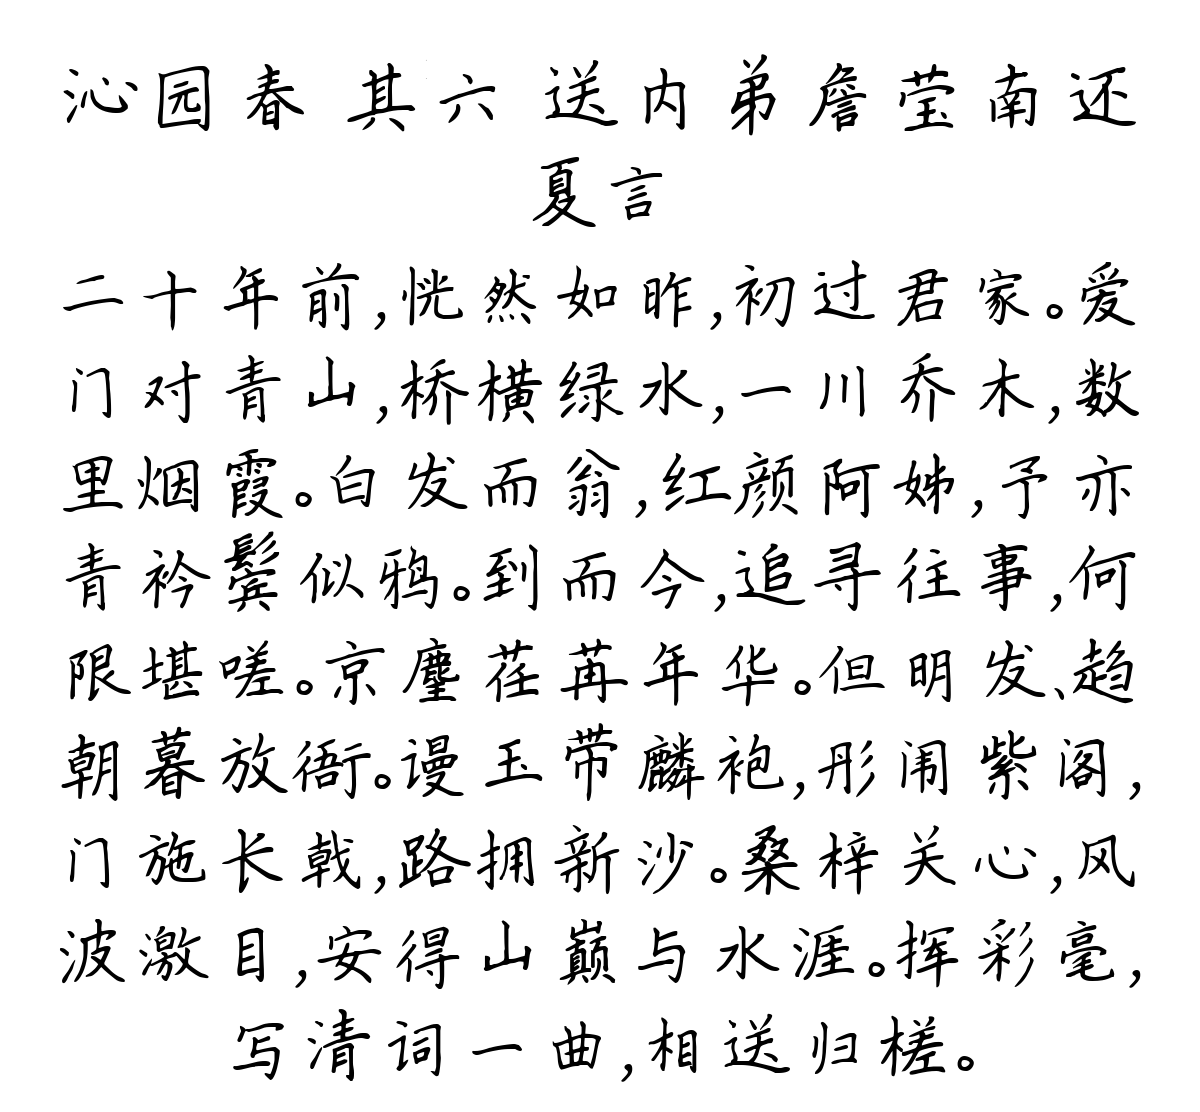 沁园春 其六 送内弟詹莹南还
夏言
二十年前,恍然如昨,初过君家。爱
门对青山,桥横绿水,一川乔木,数
里烟霞。白发而翁,红颜阿姊,予亦
青衿鬓似鸦。到而今,追寻往事,何
限堪嗟。京尘荏苒年华。但明发、趋
朝暮放衙。谩玉带麟袍,彤闱紫阁,
门施长戟,路拥新沙。桑梓关心,风
波激目,安得山巅与水涯。挥彩毫,
写清词一曲,相送归槎。